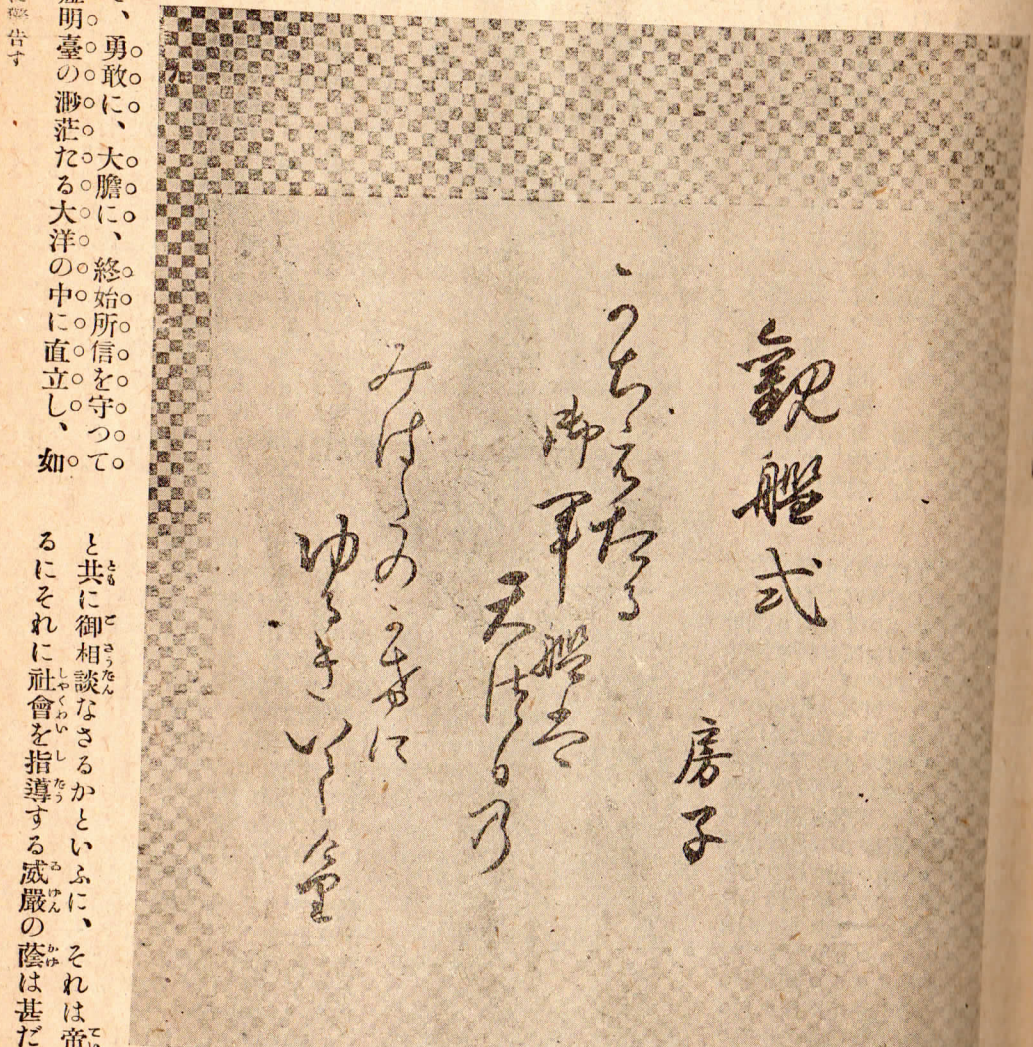 觀艦式
房子
かちえたる
御軍艦
天つ日乃
みは
に
ゆるき
、勇敢に、大膽に、終始所信を守つて
明臺の渺茫たる大洋の中に直立し、如
警告す
と共に御相談なさるかといふに、それは帝
るにそれに社會を指導する威嚴の蔭は甚だ